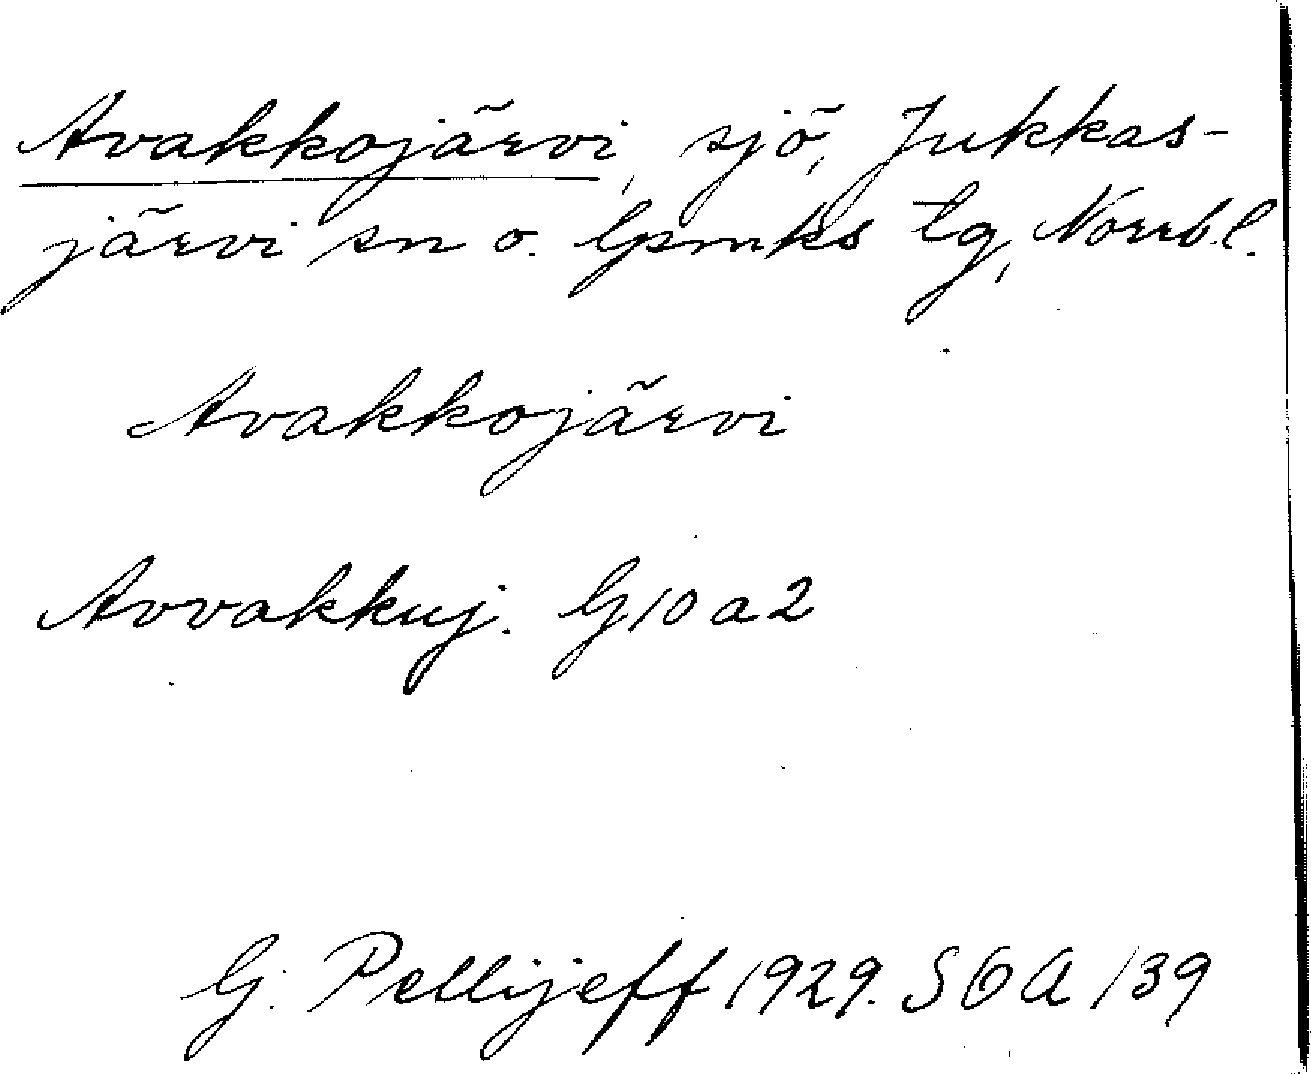 Avakkojärvi, sjö, Jukkas-
järvi sn o. lpmks tg, Norrb.l.
Avakkojärvi
Avvakkuj. G10a2
G. Pellijeff 1929. SOA 139